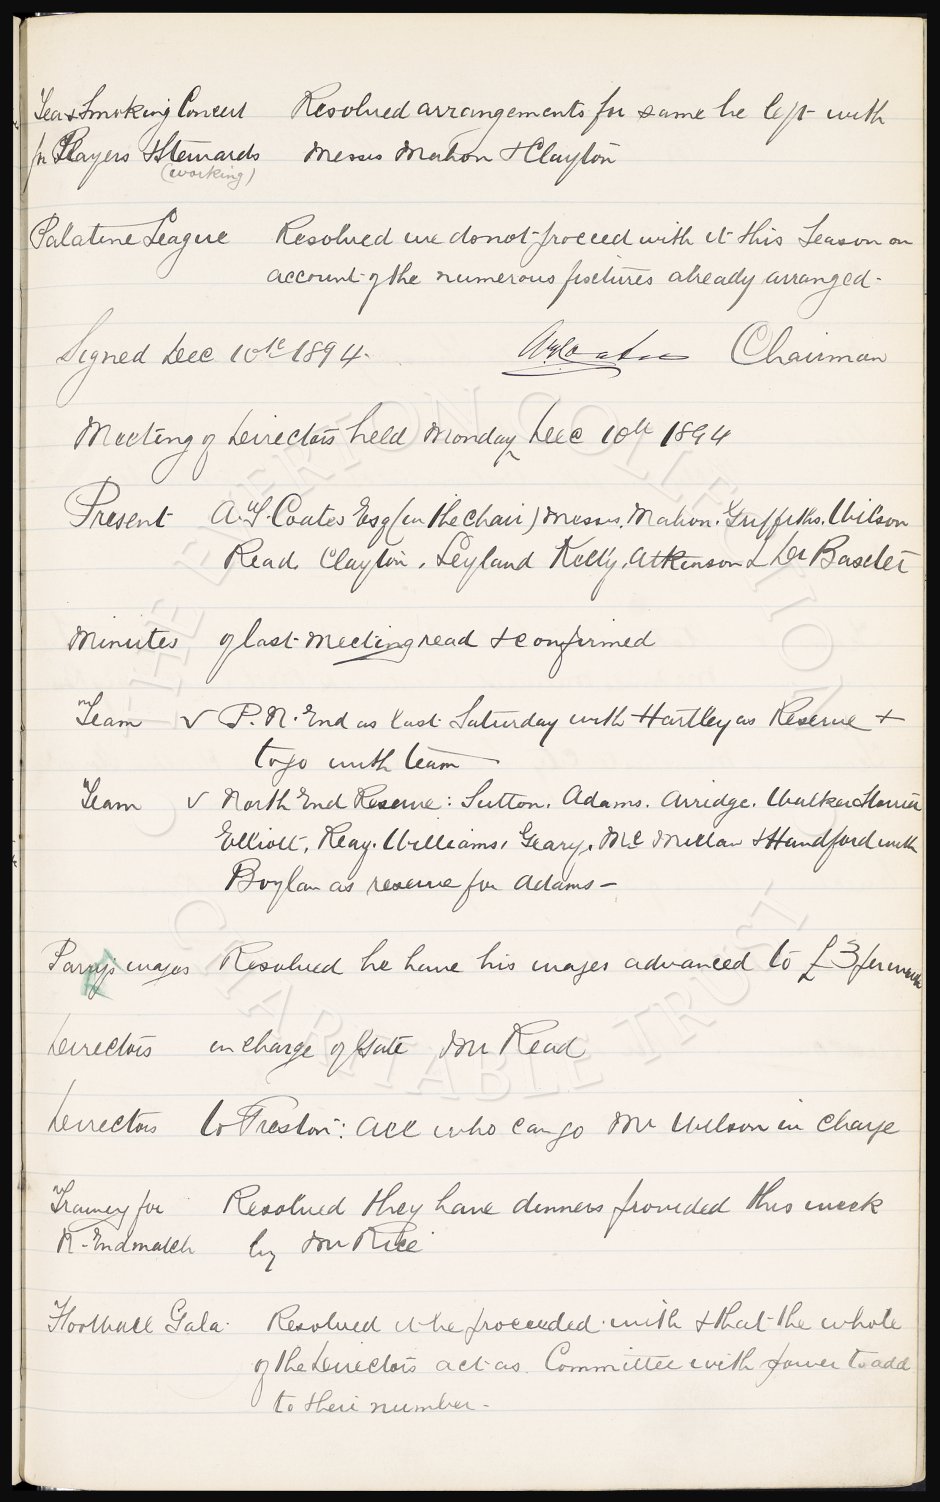 Tea & Smoking Concert Resolved arrangements for same be left with
for Players & Stewards Messrs Mahon & Clayton
(working)
Palatine League Resolved we do not proceed with it this Season on
account of the numerous fixtures already arranged.
Signed Dec 10th 1894. Chairman
Meeting of Directors held Monday Dec 10th 1894
Present A.T. Coates Esq (in the Chair) Messrs. Mahon. Griffiths. Wilson
Read. Clayton. Leyland Kelly. Atkinson & Dr Baxter
Minutes of last meeting read & confirmed
Team v P. N. End as last Saturday with Hartley as Reserve &
to go with team
Team v North End Reserve: Sutton. Adams. Arridge. Walker Storrier
Elliott. Reay. Williams. Geary. McMillan & Handford with
Boylan as reserve for Adams -
Parry's wages Resolved he have his wages advanced to £3 per week
Directors in charge of Gate Mr Read
Directors to Preston: All who can go Mr Wilson in Charge
Training for Resolved they have dinners provided this week
N. End match by Mr Rice
Football Gala. Resolved it be proceeded with & that the whole
of the Directors act as Committee with power to add
to their number.
THE EVERTON COLLECTION
CHARITABLE TRUST